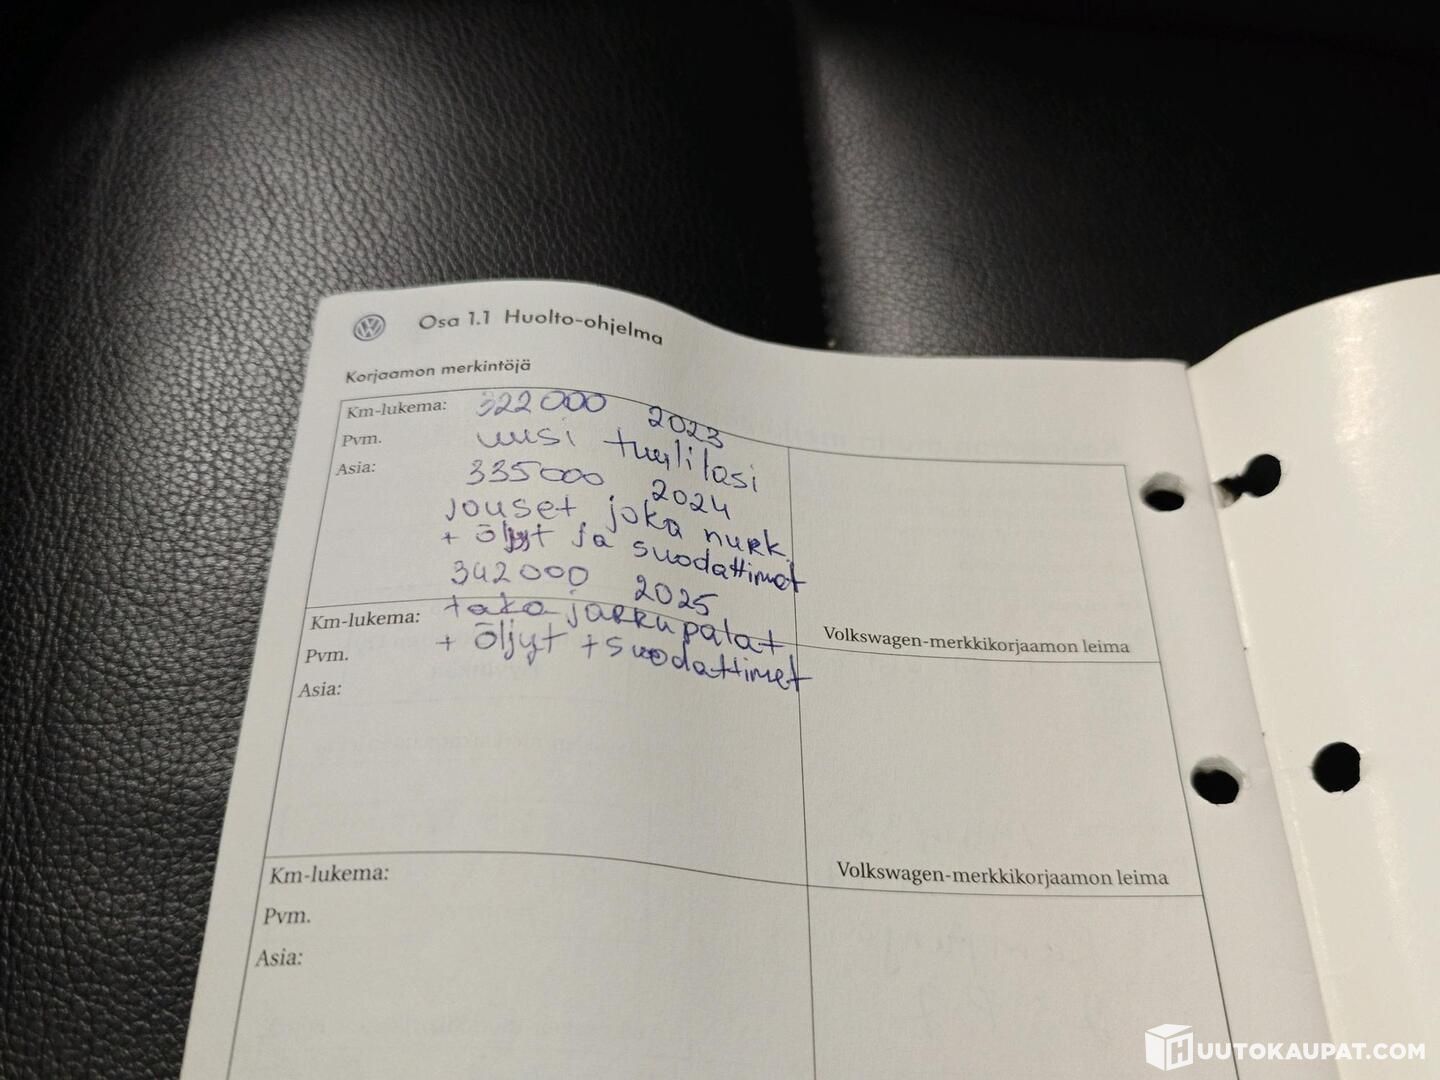 Osa 1.1 Huolto-ohjelma
Korjaamon merkintöjä
Km-lukema: 322 000 2023
Pvm. uusi tuulilasi
Asia: 335 000 2024
jouset joka nurk.
+ õljyt ja suodattimet
342 000 2025
Km-lukema: taka jarrupalat
Volkswagen-merkkikorjaamon leima
Pvm. + õljyt + suodattimet
Asia:
Km-lukema:
Volkswagen-merkkikorjaamon leima
Pvm.
Asia:
HUUTOKAUPAT.COM